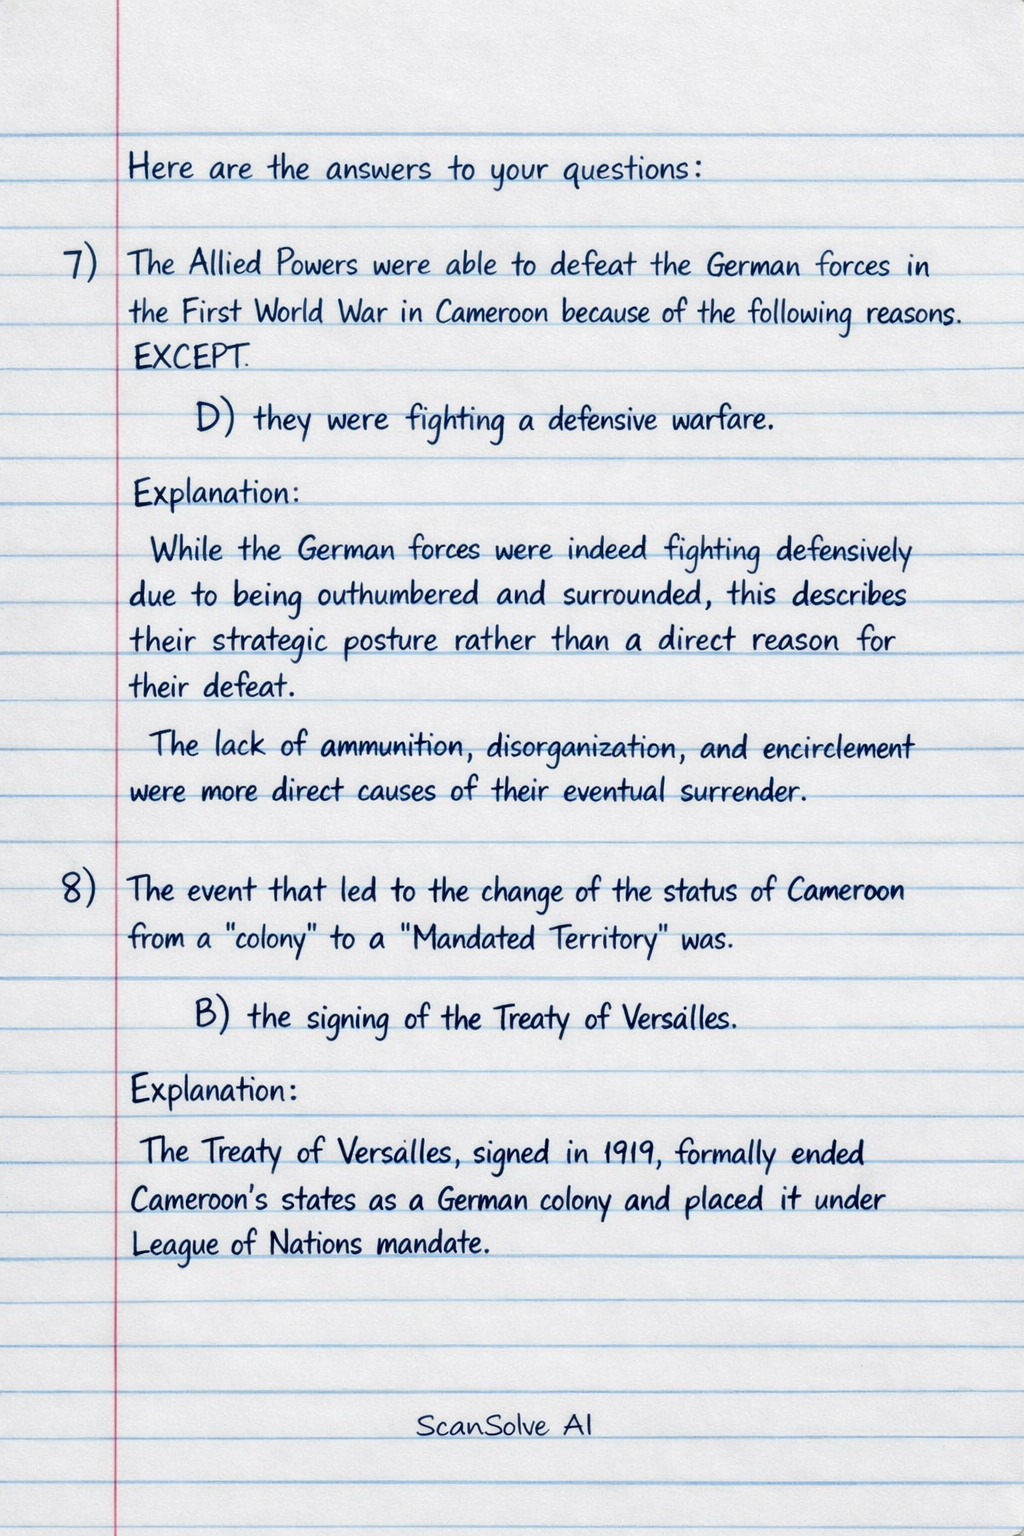 Here are the answers to your questions:
7) The Allied Powers were able to defeat the German forces in
the First World War in Cameroon because of the following reasons.
EXCEPT.
D) they were fighting a defensive warfare.
Explanation:
While the German forces were indeed fighting defensively
due to being outhumbered and surrounded, this describes
their strategic posture rather than a direct reason for
their defeat.
The lack of ammunition, disorganization, and encirclement
were more direct causes of their eventual surrender.
8) The event that led to the change of the status of Cameroon
from a "colony" to a "Mandated Territory" was.
B) the signing of the Treaty of Versailles.
Explanation:
The Treaty of Versailles, signed in 1919, formally ended
Cameroon's states as a German colony and placed it under
League of Nations mandate.
ScanSolve AI